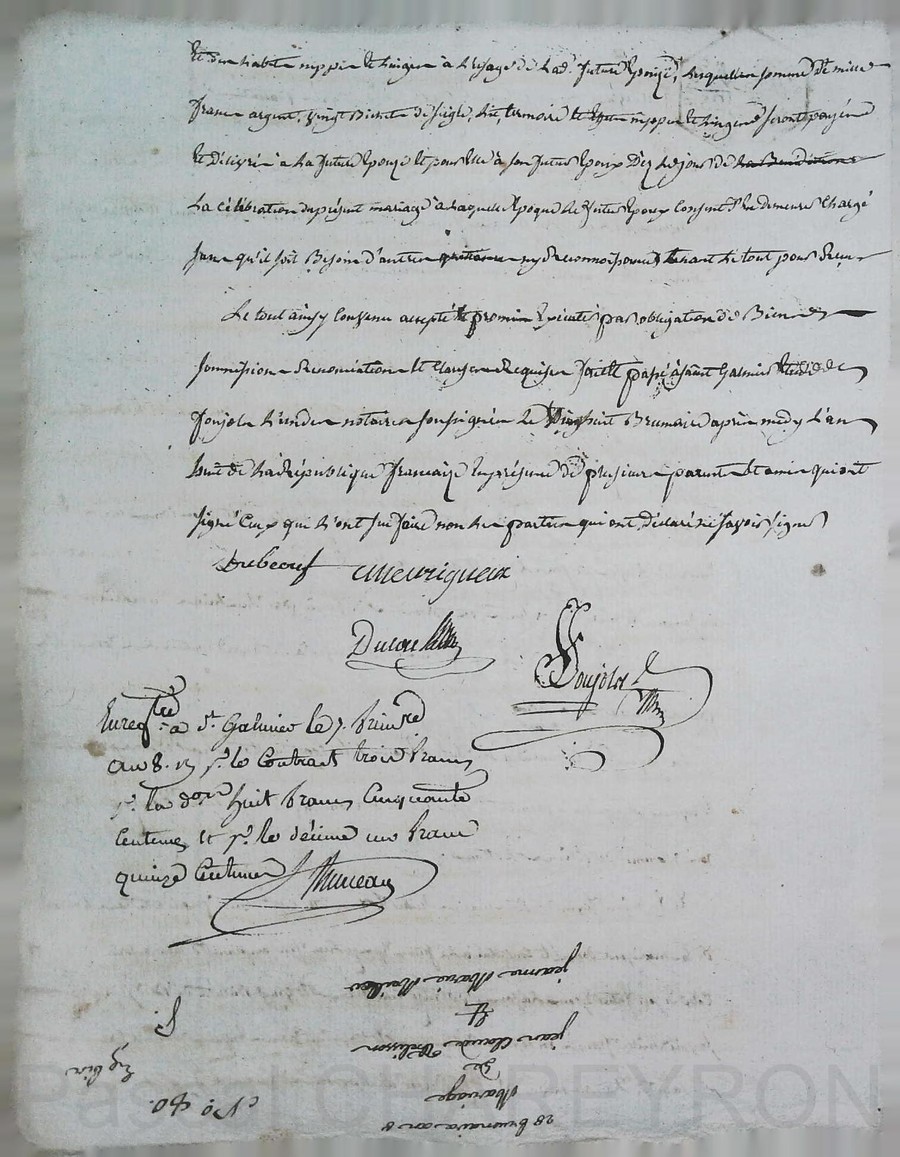 et des habits nippes et linges à l'usage de lad. future Epouze, lesquelles somme de mille
francs argent, vingt Bichets de seigle, lit, armoire et nippes et linges seront payés
et délivrés à la future Epouze et pour elle à son futur Epoux Dez le jour de la Benediction
La célébration du présent mariage à laquelle Epoque le futur Epoux consent d'En demeurer Chargé
sans qu'il soit Besoin d'autres quittance ny Reconnoissances tenant le tout pour Reçu
Le tout ainsy convenu accepté et promis Exécuter par obligation de Biens
soumissions Renonciations et Clauses Requises fait et passé à Saint Galmier
Poujol l'un des notaires soussignés le Vingt huit Brumaire après midy L'an
huit de la République française En présence de plusieurs parents et amis qui ont
signé Ceux qui l'ont sçu faire non les parties qui ont Déclaré ne savoir signer
Dubeouf Meurigneix
Poujol
Enregtré à St. Galmier le 7. frim.re
an 8. r. pr. le Contrat trois francs
pr. la d.on huit francs Cinquante
Centimes et pr. le décime un franc
quinze Centimes
28 brumaire an 8
Mariage
De
jean Claude
Et
jeanne Marie
No. 40.